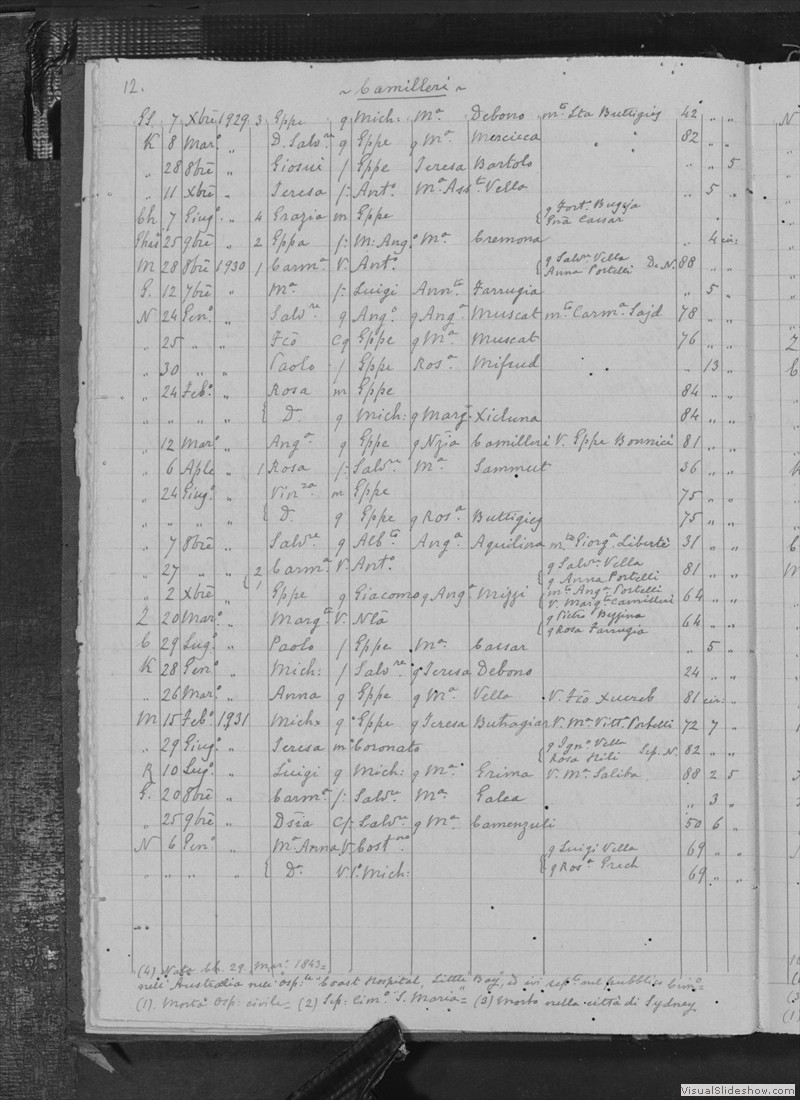 12.
~ Camilleri ~
Gl. 7 Xbre 1929 3 Eppe q Mich: Ma Debono mto Sta Buttigieg 42 „ „
K 8 Mar° „ D. Salvre q Eppe q Ma Mercieca 82 „ „
„ 28 8bre „ Giosuè f Eppe Teresa Bartolo „ „ 5
„ 11 Xbre „ Teresa f: Anto Ma Assta Vella „ 5 „
Ch 7 Giug° „ 4 Grazia m Eppe { q Fort. Bugeja
Caesar
25 9bre „ 2 Eppa f: M: Ang° Ma Cremona „ 4 cir:
M 28 8bre 1930 1 Carma V. Anto { q Salvre Vella
Anna Portelli De N. 88 „ „
G. 12 7bre „ Ma f: Luigi Annta Farrugia „ 5 „
N 24 Gen° „ Salvre q Ang° q Anga Muscat mto Carma Sajd 78 „ „
„ 25 „ „ Fco Cq Eppe q Ma Muscat 76 „ „
„ 30 „ „ Paolo f Eppe Rosa Mifsud „ 13 „
„ 24 Feb° „ Rosa m Eppe 84 „ „
„ „ „ „ { Da q Mich: q Marga Xicluna 84 „ „
„ 12 Mar° „ Anga q Eppe q Nzia Camilleri V. Eppe Bonnici 81 „ „
„ 6 Aple „ 1 Rosa f: Salvre Ma Sammut 36 „ „
„ 24 Giug° „ Vinza m Eppe 75 „ „
„ „ „ „ { Da q Eppe q Rosa Buttigieg 75 „ „
„ 7 8bre „ Salvre q Albto Anga Aquilina mto Giorga Libertè 31 „ „
„ 27 „ „ { 2 Carma V. Anto { q Salvre Vella
q Anna Portelli 81 „ „
„ 2 Xbre „ 1 Eppe q Giacomo q Anga Mizzi { mto Anga Portelli
V. Margta Camilleri 64 „ „
Z 20 Mar° „ Margta V. Nla { q Pietro Bezzina
q Rosa Farrugia 64 „ „
C 29 Lug° „ Paolo f Eppe Ma Caesar „ 5 „
K 28 Gen° „ Mich: f Salvre q Teresa Debono 24 „ „
„ 26 Mar° „ Anna q Eppe q Ma Vella V. Fco Xuereb 81 cir: „
M 15 Feb° 1931 Mich q Eppe q Teresa Butragiar V. Ma Vitta Portelli 72 7 „
„ 29 Giug° „ Teresa m Coronato { q Ign° Vella
Rosa Sep. N. 82 „ „
R 10 Lug° „ Luigi q Mich: q Ma Grima V. Ma Saliba 88 2 5
G. 20 8bre „ Carma f: Salvre Ma Galea „ 3 „
„ 25 9bre „ Dsia C f: Salvre q Ma Camenzuli 50 6 „
N 6 Gen° „ Ma Anna V. Costno { q Luigi Vella 69 „ „
„ „ „ { Da V. Mich: q Rosa Grech 69 „ „
(4) Nato Ch. 29 Mar° 1843=
nell'Australia nell'Osp:le "Coast Hospital, Little Bay", ed ivi septo nel pubblico Cim°=
(1). Morta Osp: civile= (2) Sep: Cim° S. Maria= (3) Morto nella città di Sydney
VisualSlideshow.com